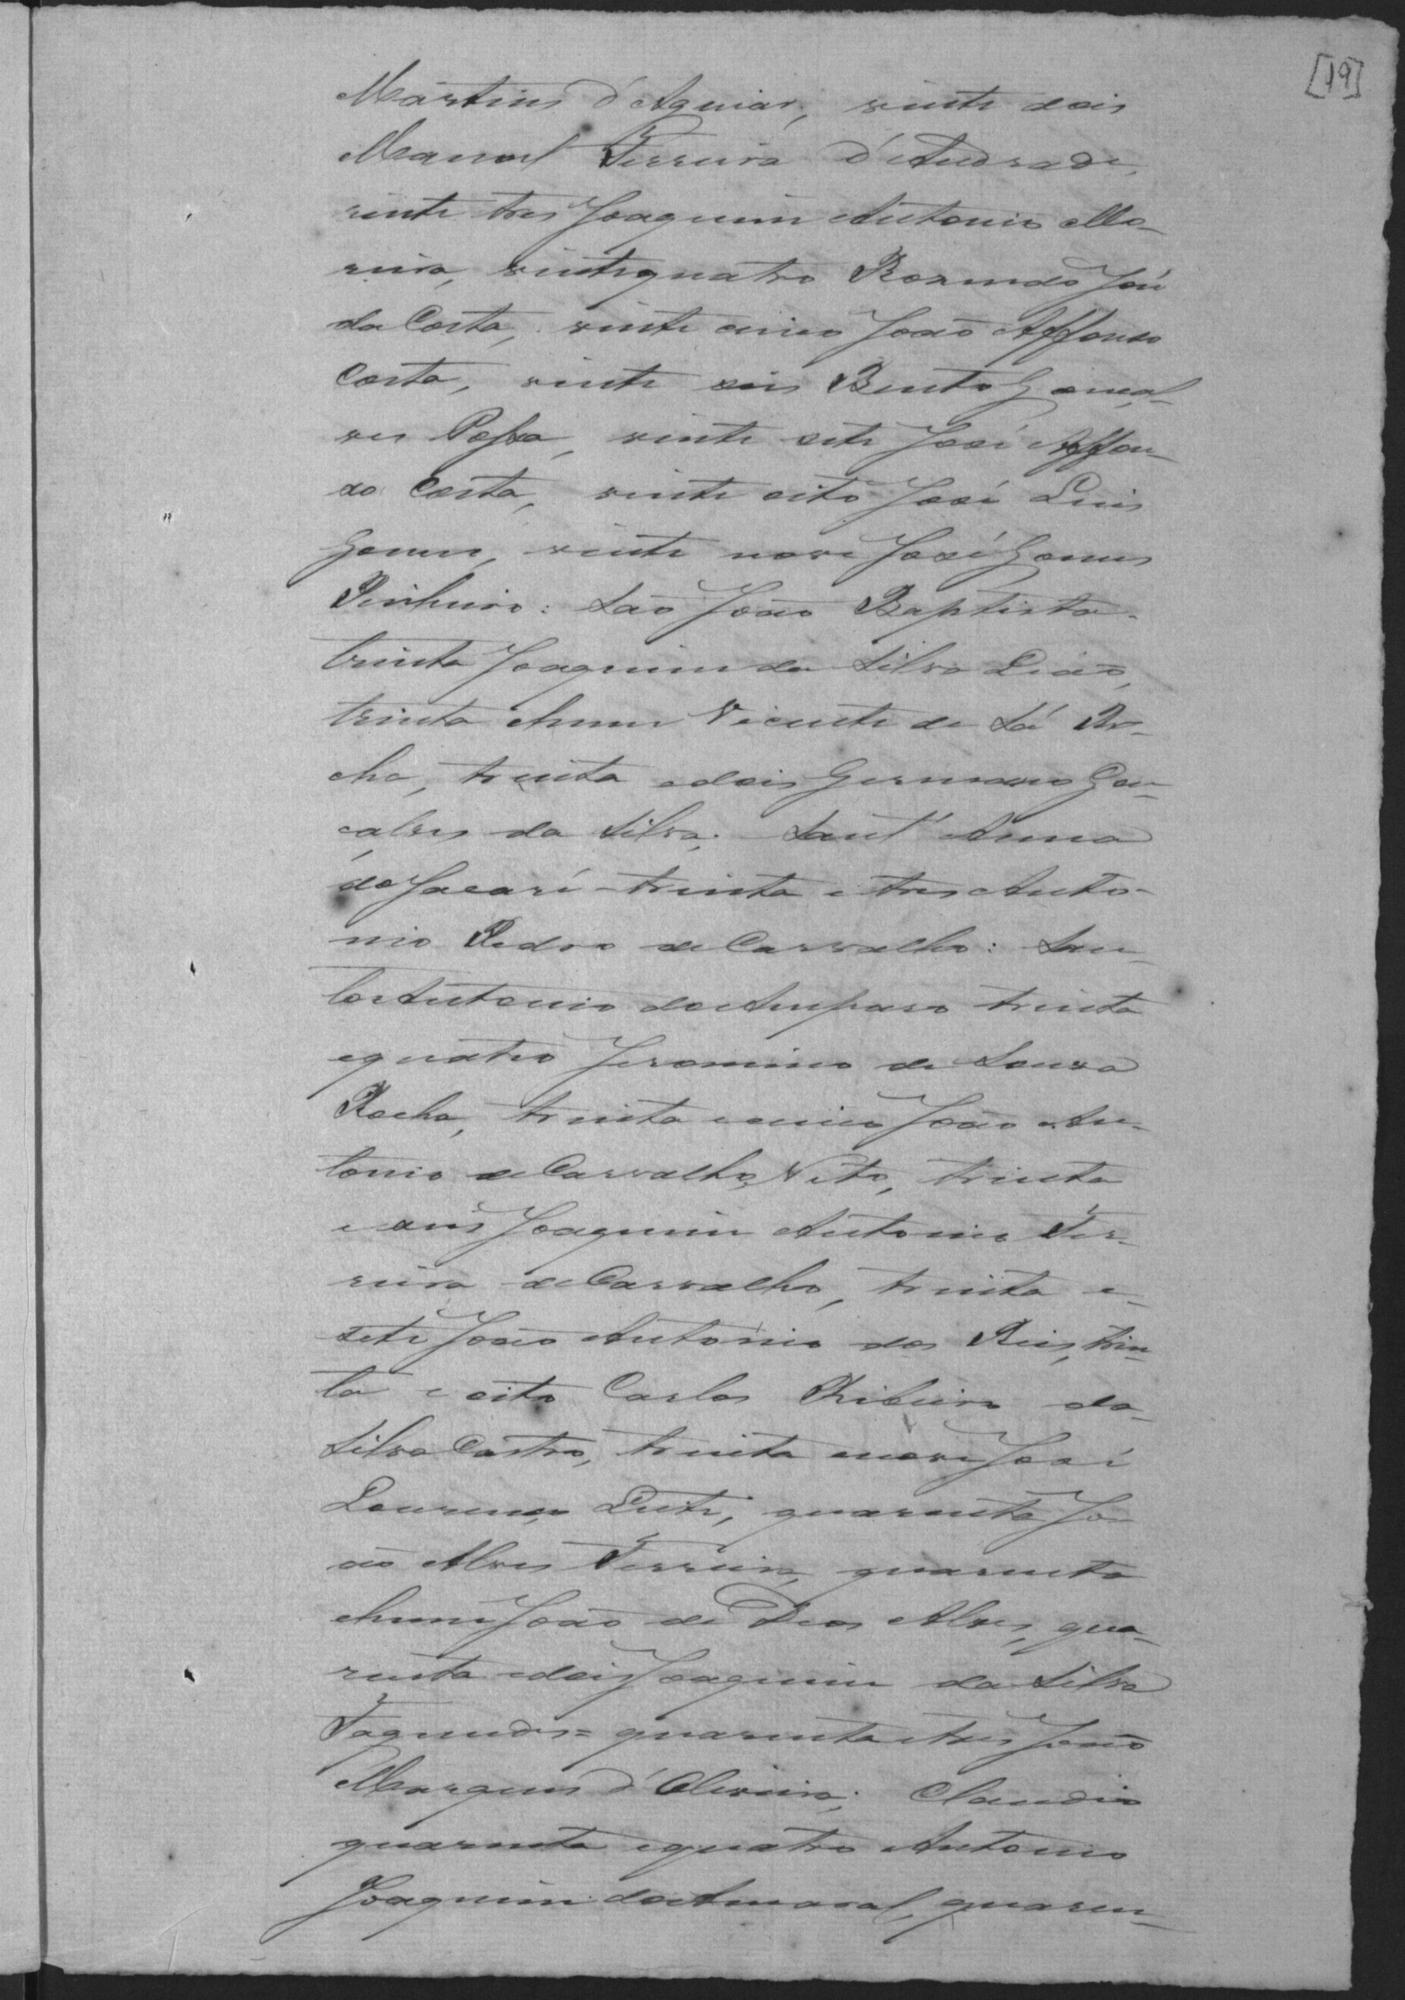 [19]
Martins d'Aguiar, vinte dois
Manoel Ferreira d'Andrade,
vinte tres Joaquim Antonio Mo-
reira, vinte quatro Rosendo José
da Costa, vinte cinco João Affonso
Costa, vinte seis Bento Gonçal-
ves Passa, vinte sete José Affon-
so Costa, vinte oito José Luis
Gomes, vinte nove José Gomes
Pinheiro: São João Baptista.
trinta Joaquim da Silva Leão,
trinta e hum Vicente de Sá Ro-
cha, trinta e dois Germano Gon-
çalves da Silva; Sant'Anna
do Jacaré - trinta e tres Anto-
nio Pedro de Carvalho: San-
to Antonio do Amparo trinta
e quatro Jeronimo de Souza
Rocha, trinta e cinco João An-
tonio de Carvalho Neto, trinta
e seis Joaquim Antonio Fer-
reira de Carvalho, trinta e
sete João Antonio dos Reis, trin-
ta e oito Carlos Ribeiro da
Silva Castro, trinta e nove José
Lourenço Leite, quarenta Jo-
ão Alves Ferreira, quarenta
e hum João de Deos Alves, qua-
renta e dois Joaquim da Silva
Fagundes = quarenta e tres João
Marques d'Oliveira; Claudio
quarenta e quatro Antonio
Joaquim do Amaral, quaren-